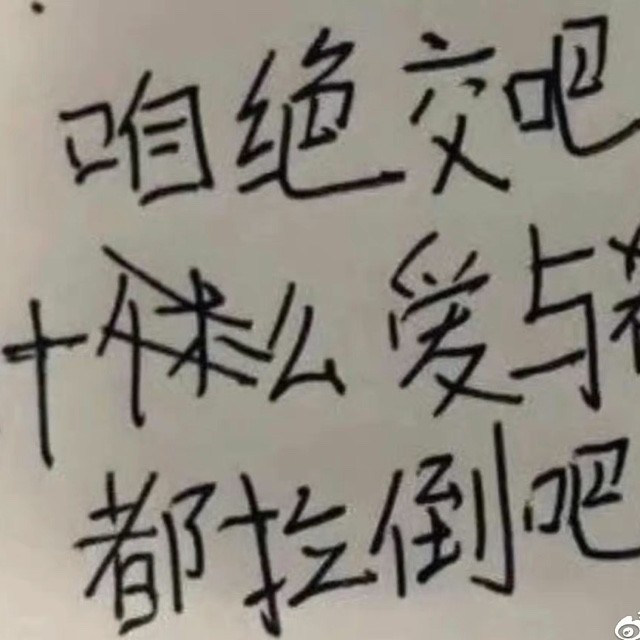 咱绝交吧
十么爱与
都拉倒吧